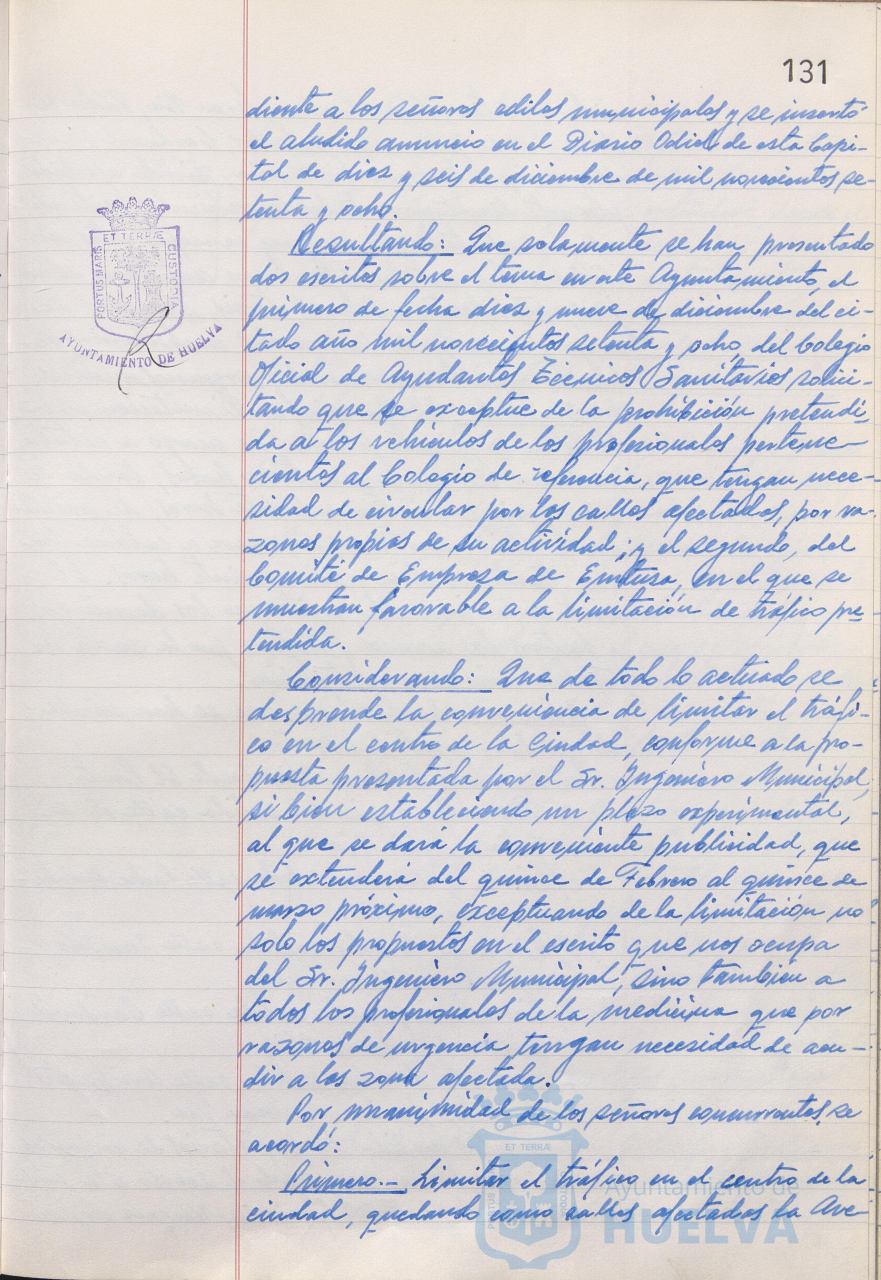 131
diente a los señores ediles municipales y se insertó
el aludido anuncio en el Diario Odiel de esta Capi-
tal de diez y seis de diciembre de mil novecientos se-
tenta y ocho.
Resultando: Que solamente se han presentado
dos escritos sobre el tema en este Ayuntamiento, el
primero de fecha diez y nueve de diciembre del ci-
tado año mil novecientos setenta y ocho, del Colegio
Oficial de Ayudantes Técnicos Sanitarios solici-
tando que se exceptue de la prohibición pretendi-
da a los vehículos de los profesionales pertene-
cientes al Colegio de referencia, que tengan nece-
sidad de circular por las calles afectadas, por ra-
zones propias de su actividad; y el segundo, del
Comité de Empresa de Emtusa, en el que se
muestran favorable a la limitación de tráfico pre-
tendida.
Considerando: Que de todo lo actuado se
desprende la conveniencia de limitar el tráfi-
co en el centro de la Ciudad, conforme a la pro-
puesta presentada por el Sr. Ingeniero Municipal,
si bien estableciendo un plazo experimental,
al que se dará la conveniente publicidad, que
se extenderá del quince de Febrero al quince de
marzo próximo, exceptuando de la limitación no
solo los propuestos en el escrito que nos ocupa
del Sr. Ingeniero Municipal, sino también a
todos los profesionales de la medicina que por
razones de urgencia tengan necesidad de acu-
dir a la zona afectada.
Por unanimidad de los señores concurrentes, se
acordó:
Primero.- Limitar el tráfico en el centro de la
ciudad, quedando como calles afectadas la Ave-
PORTUS MARIS ET TERRÆ CUSTODIA
AYUNTAMIENTO DE HUELVA
PORTUS ET TERRÆ
Ayuntamiento de
HUELVA